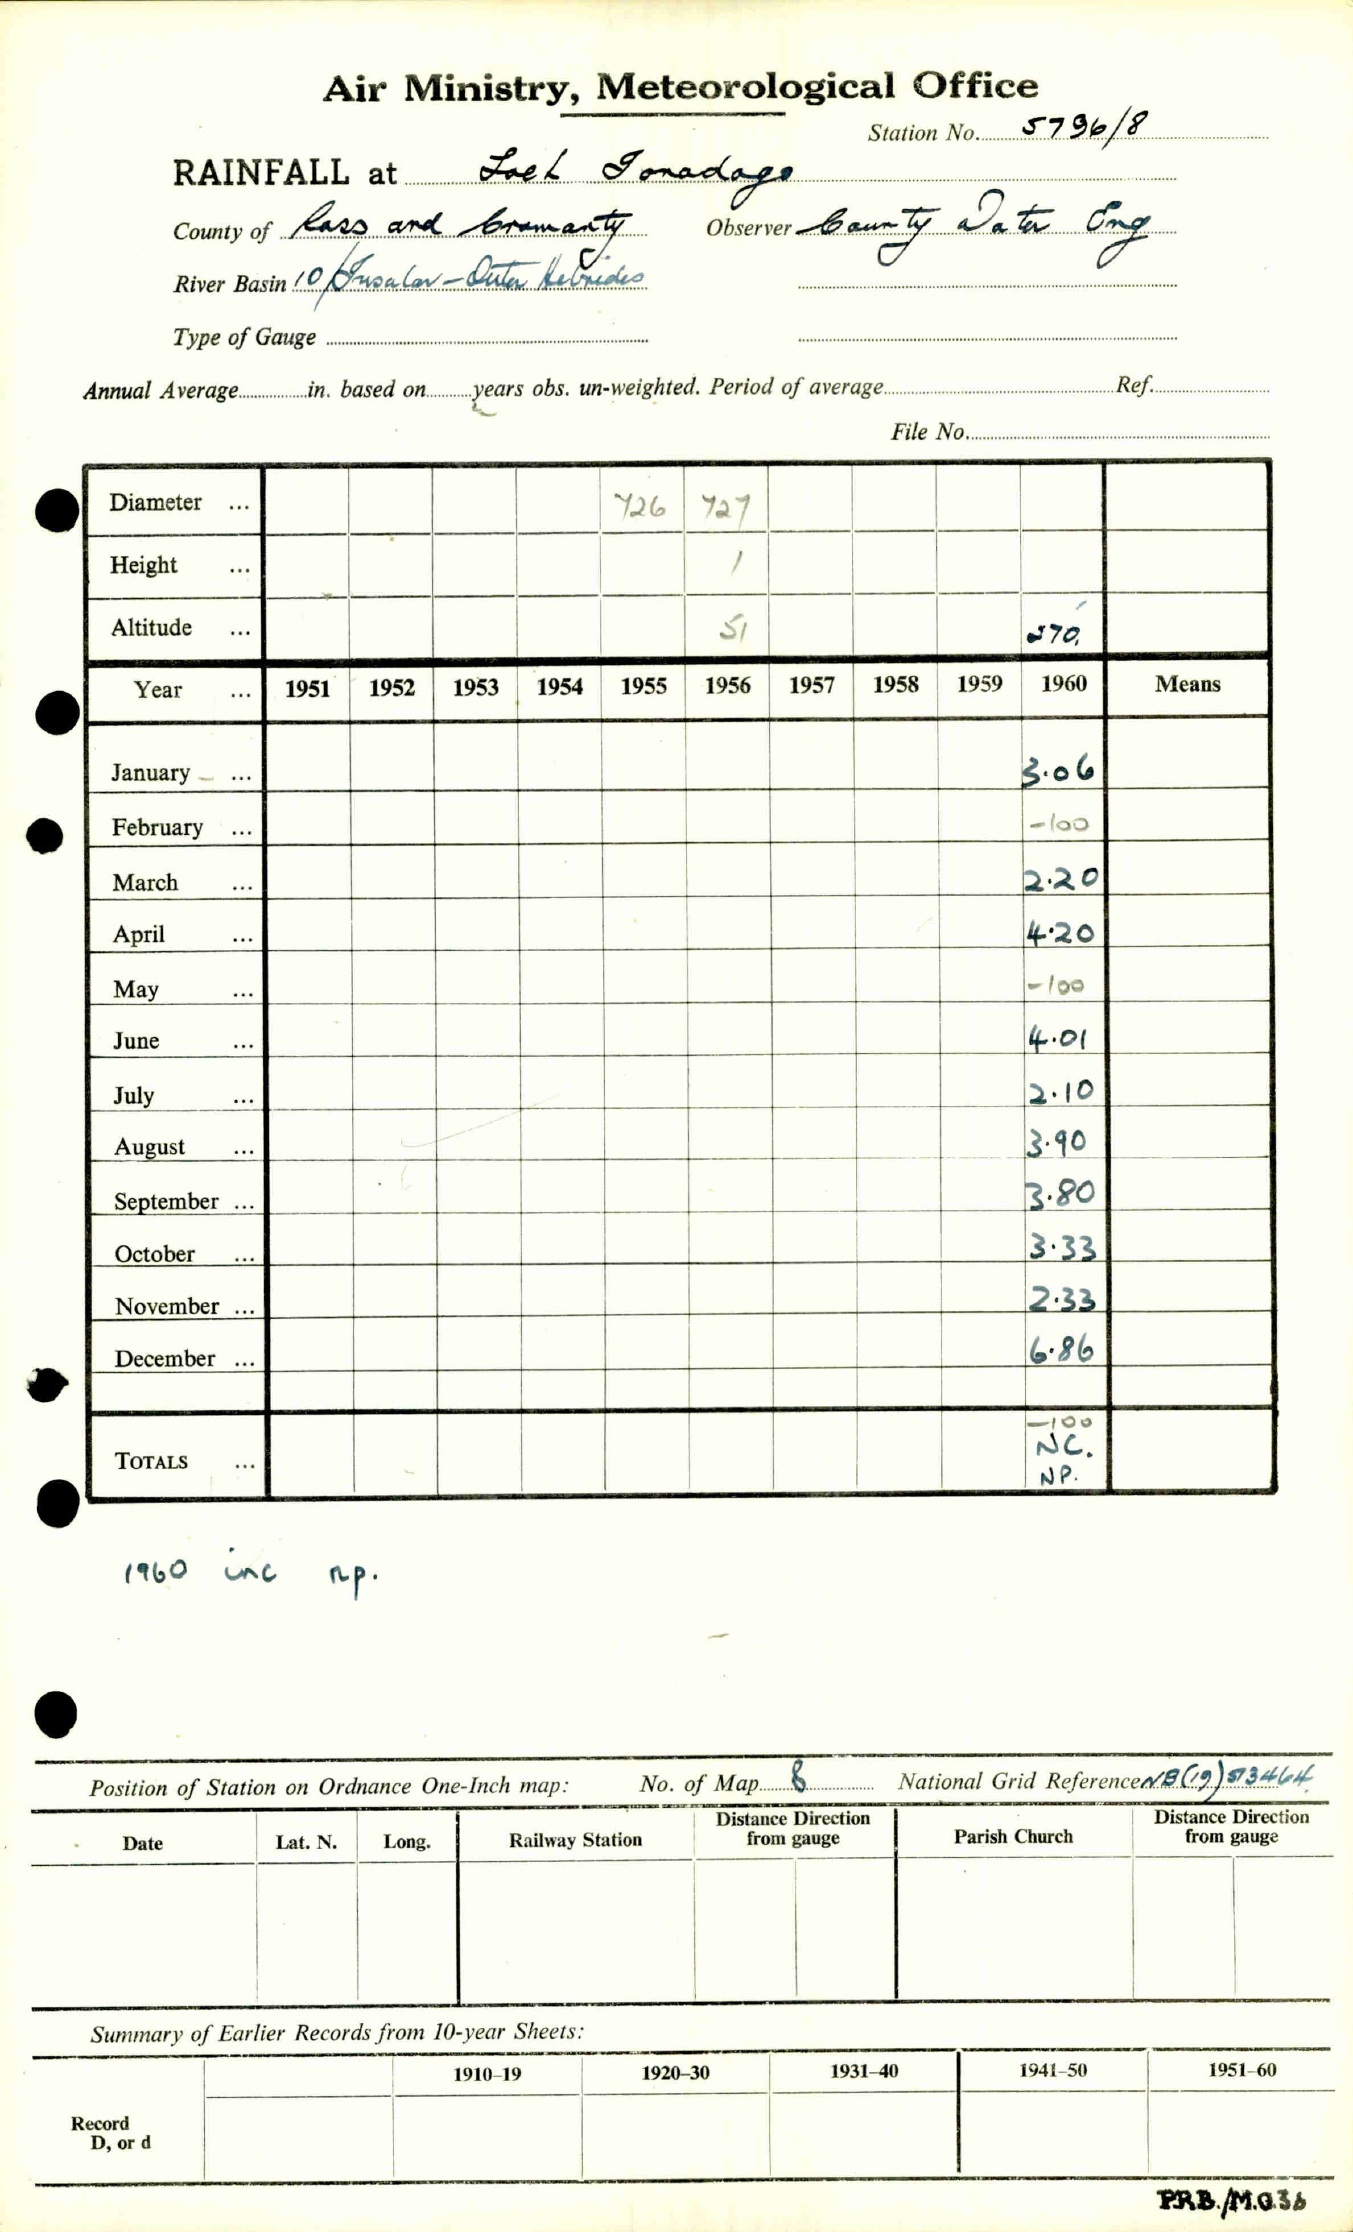 Air Ministry, Meteorological Office
Station No. 5796/8
RAINFALL at Loch
County of Ross and Cromarty Observer County Water Eng
River Basin 10/Insular - Outer Hebrides
Type of Gauge
Annual Average in. based on years obs. un-weighted. Period of average Ref.
File No.
Diameter ... 726 727
Height ... 1
Altitude ... 51 270
Year ... 1951 1952 1953 1954 1955 1956 1957 1958 1959 1960 Means
January ... 3.06
February ... -100
March ... 2.20
April ... 4.20
May ... -100
June ... 4.01
July ... 2.10
August ... 3.90
September ... 3.80
October ... 3.33
November ... 2.33
December ... 6.86
-100
TOTALS ... NC.
NP.
1960 inc np.
Position of Station on Ordnance One-Inch map: No. of Map 8 National Grid Reference NB(19)513464
Date Lat. N. Long. Railway Station Distance Direction from gauge Parish Church Distance Direction from gauge
Summary of Earlier Records from 10-year Sheets:
1910-19 1920-30 1931-40 1941-50 1951-60
Record
D, or d
PRB./M.O.36